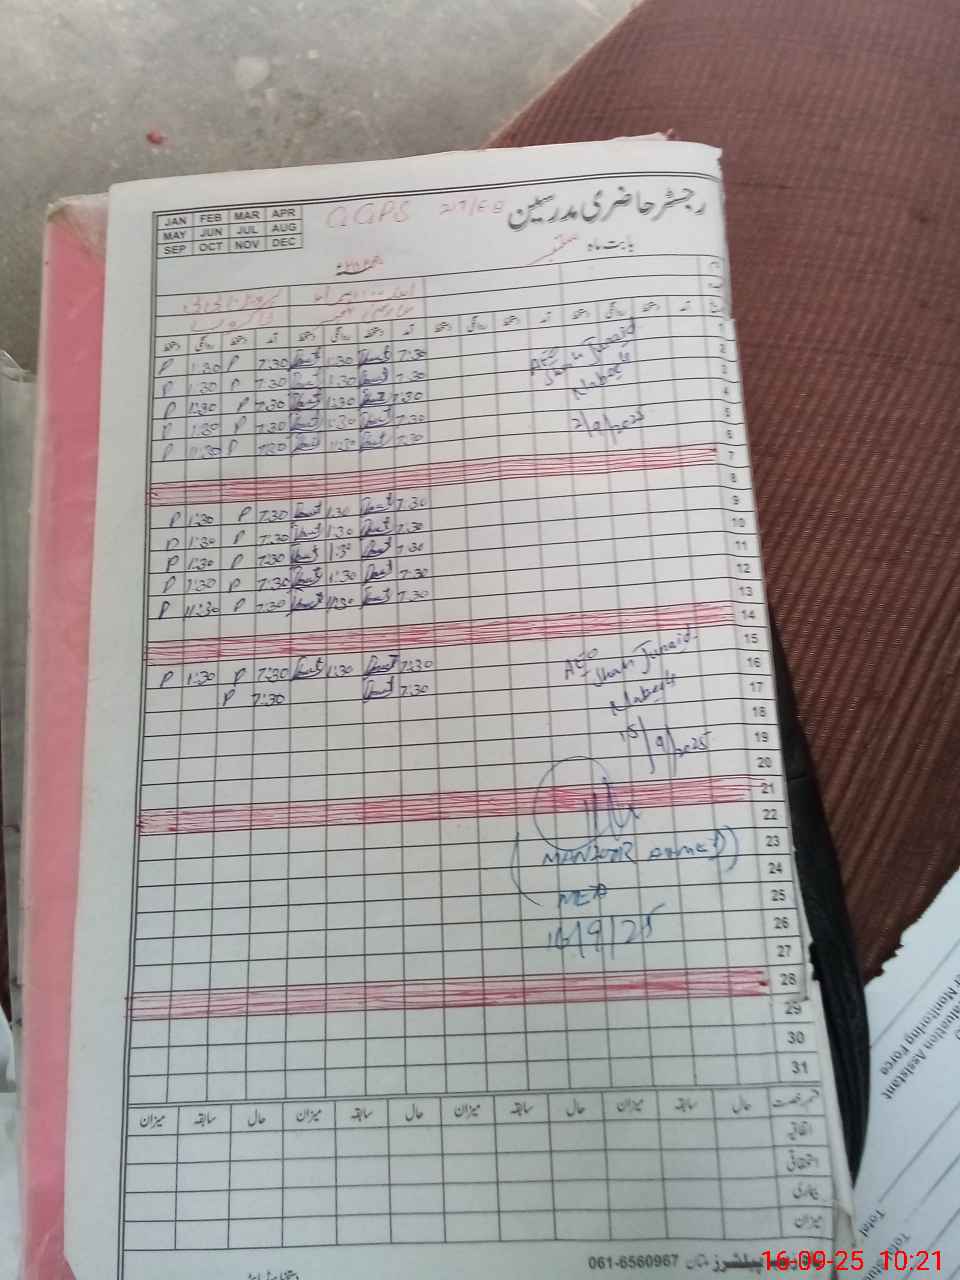 رجسٹر حاضری مدرسین
GGPS 217/EB
JAN FEB MAR APR
MAY JUN JUL AUG
SEP OCT NOV DEC
بابت ماہ ستمبر
دستخط روانگی دستخط آمد دستخط روانگی دستخط آمد دستخط روانگی دستخط آمد دستخط روانگی دستخط آمد
1 P 1:30 P 7:30 1:30 7:30
2 P 1:30 P 7:30 1:30 7:30
3 P 1:30 P 7:30 1:30 7:30
4 P 1:30 P 7:30 1:30 7:30
5 P 11:30 P 7:30 11:30 7:30
AEO
Shah Junaid
2/9/2025
6
7
8 P 1:30 P 7:30 1:30 7:30
9 P 1:30 P 7:30 1:30 7:30
10 P 1:30 P 7:30 1:30 7:30
11 P 1:30 P 7:30 1:30 7:30
12 P 11:30 P 7:30 11:30 7:30
13
14
15 P 1:30 P 7:30 1:30 7:30
16 P 7:30 7:30
AEO
Shah Junaid
15/9/2025
17
18
19
20
21
22
23
(MANZOOR AHMED)
24
25
MEA
26
16/9/25
27
28
29
30
31
قسم رخصت حال سابقہ میزان حال سابقہ میزان حال سابقہ میزان حال سابقہ میزان
اتفاقیہ
استحقاقی
بیماری
میزان
پبلشرز ملتان 061-6560967
Evaluation Assistant
Monitoring Force
Total
16-09-25 10:21